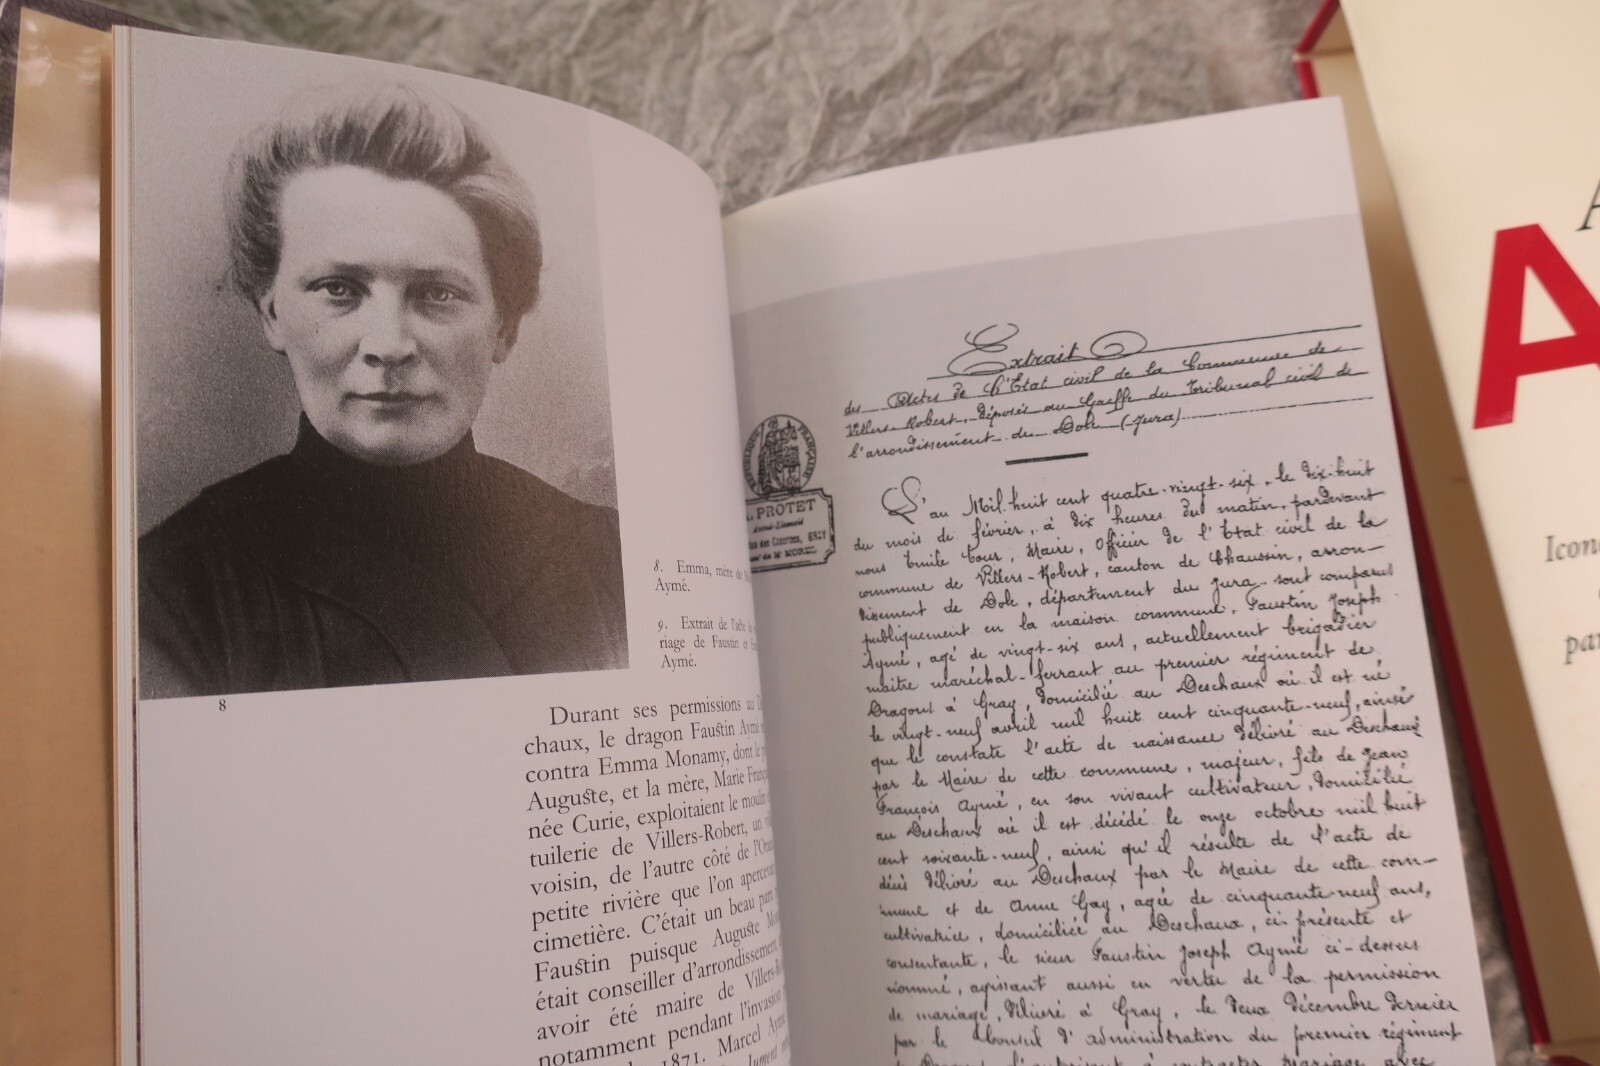 8. Emma, mère de
Aymé.
9. Extrait de l'acte de
riage de Faustin et
Aymé.
8
Durant ses permissions au
chaux, le dragon Faustin Aymé
contra Emma Monamy, dont le
Auguste, et la mère, Marie
née Curie, exploitaient le moulin
tuilerie de Villers-Robert, un
voisin, de l'autre côté de
petite rivière que l'on
cimetière. C'était un beau parti
Faustin puisque Auguste
était conseiller d'arrondissement,
avoir été maire de
notamment pendant l'invasion
1871. Marcel
Jument
Extrait
des Actes de l'Etat civil de la Commune de
Villers-Robert, déposés au Greffe du Tribunal civil de
l'arrondissement de Dole (Jura)
REPUBLIQUE FRANÇAISE
PROTET
GRAY
MOREL
L'an Mil huit cent quatre-vingt-six, le dix-huit
du mois de février, à dix heures du matin, pardevant
nous Emile Cour, Maire, Officier de l'Etat civil de la
commune de Villers-Robert, canton de Chaussin, arron-
dissement de Dole, département du Jura sont comparus
publiquement en la maison commune, Faustin Joseph
Aymé, agé de vingt-six ans, actuellement brigadier
maître maréchal-ferrant au premier régiment de
Dragons à Gray, domicilié au Deschaux où il est né
le vingt-neuf avril mil huit cent cinquante-neuf, ainsi
que le constate l'acte de naissance délivré au Deschaux
par le Maire de cette commune, majeur, fils de Jean
François Aymé, en son vivant cultivateur, domicilié
au Deschaux où il est décédé le onze octobre mil huit
cent soixante-neuf, ainsi qu'il résulte de l'acte de
décès délivré au Deschaux par le Maire de cette com-
mune et de Anne Gay, agée de cinquante-neuf ans,
cultivatrice, domiciliée au Deschaux, ci-présente et
consentante, le sieur Faustin Joseph Aymé ci-dessus
nommé, agissant aussi en vertu de la permission
de mariage, délivré à Gray, le deux décembre dernier
par le Conseil d'administration du premier régiment
de Dragons l'autorisant à contracter mariage avec
A
A
Icono